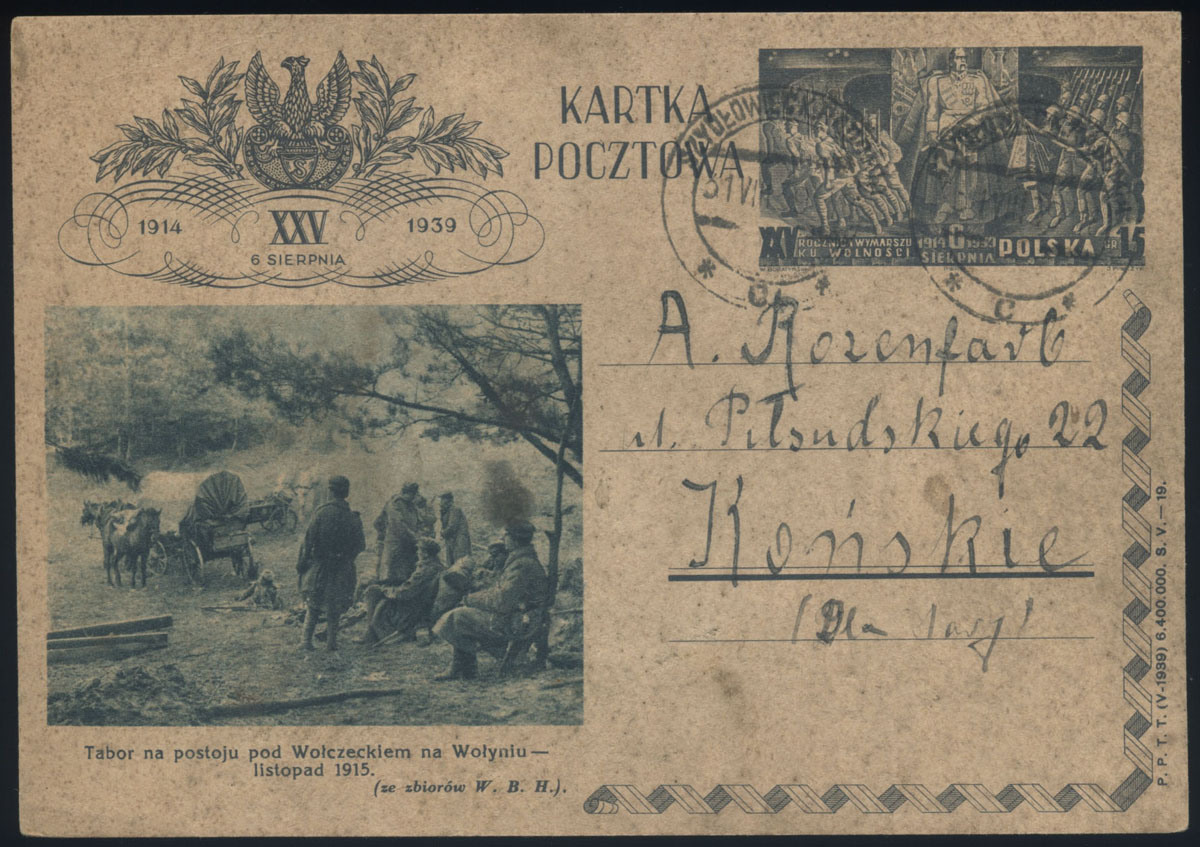 KARTKA
POCZTOWA
1914 XXV 1939
6 SIERPNIA
XXV ROCZNICA WYMARSZU
KU WOLNOŚCI
1914 6 1939
SIERPNIA
POLSKA GR. 15
31 VII
C
C
A. Rozenfarb
ul. Piłsudskiego 22
Końskie
(Dla Sary)
Tabor na postoju pod Wołczeckiem na Wołyniu —
listopad 1915.
(ze zbiorów W. B. H.).
P. P. T. T. (V-1939) 6.400.000. S. V. — 19.